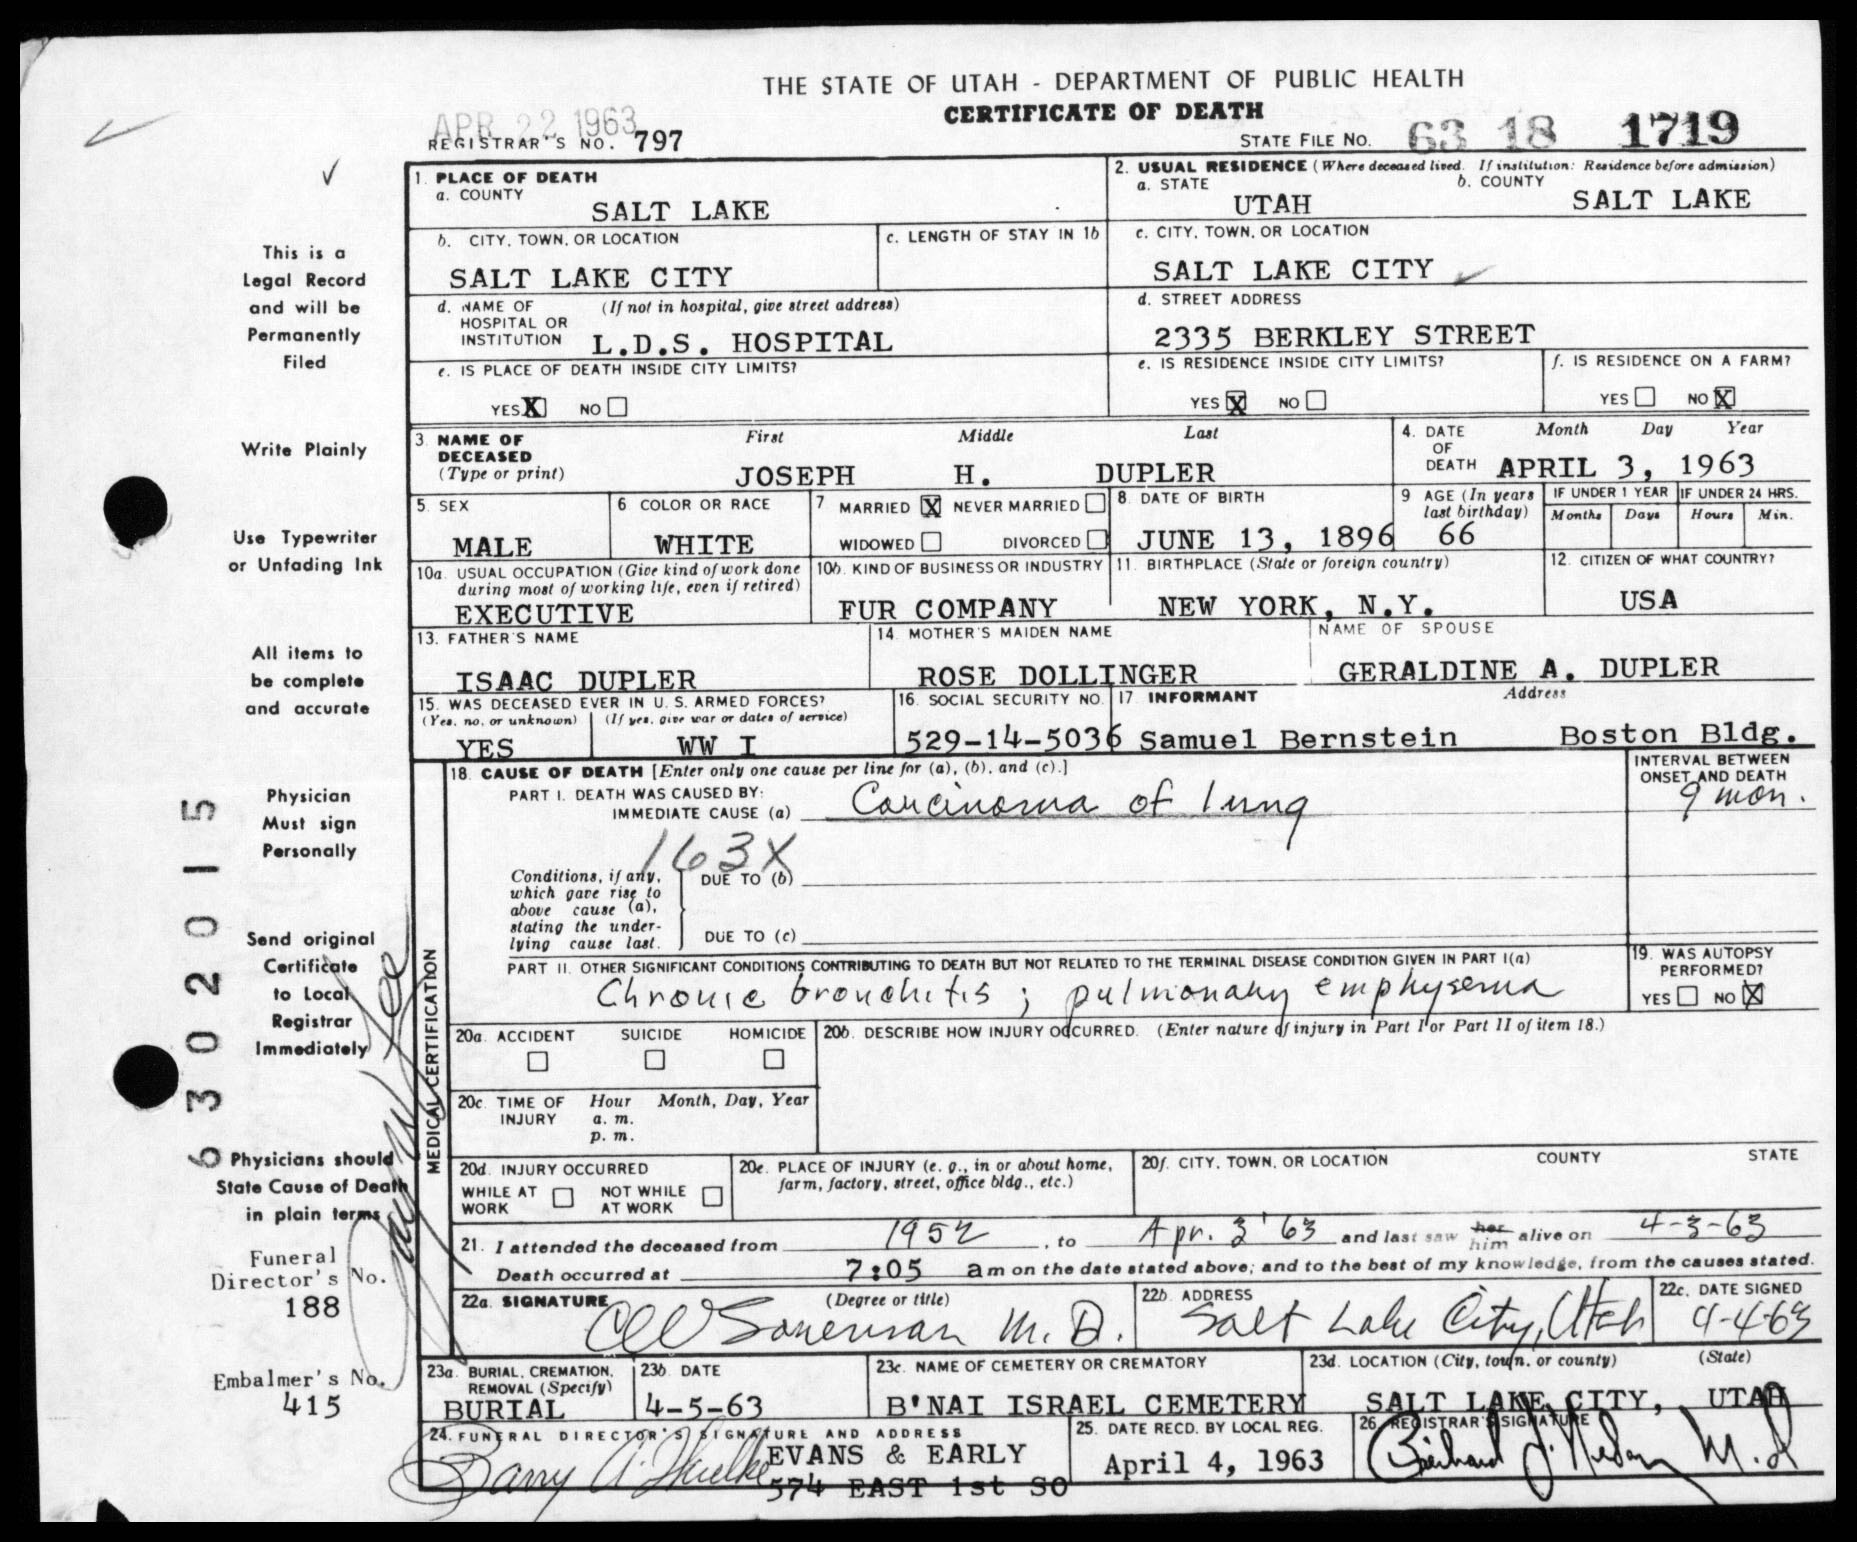 THE STATE OF UTAH - DEPARTMENT OF PUBLIC HEALTH
CERTIFICATE OF DEATH
APR 22 1963
REGISTRAR'S NO. 797
STATE FILE NO. 63 18 1719
1. PLACE OF DEATH
a. COUNTY
SALT LAKE
2. USUAL RESIDENCE (Where deceased lived. If institution: Residence before admission)
a. STATE
UTAH
b. COUNTY
SALT LAKE
b. CITY, TOWN, OR LOCATION
SALT LAKE CITY
c. LENGTH OF STAY IN 1b
c. CITY, TOWN, OR LOCATION
SALT LAKE CITY
d. NAME OF HOSPITAL OR INSTITUTION
(If not in hospital, give street address)
L.D.S. HOSPITAL
d. STREET ADDRESS
2335 BERKLEY STREET
e. IS PLACE OF DEATH INSIDE CITY LIMITS?
YES X NO
e. IS RESIDENCE INSIDE CITY LIMITS?
YES X NO
f. IS RESIDENCE ON A FARM?
YES NO X
3. NAME OF DECEASED
(Type or print)
First Middle Last
JOSEPH H. DUPLER
4. DATE OF DEATH
Month Day Year
APRIL 3, 1963
5. SEX
MALE
6 COLOR OR RACE
WHITE
7 MARRIED X NEVER MARRIED
WIDOWED DIVORCED
8. DATE OF BIRTH
JUNE 13, 1896
9 AGE (In years last birthday)
66
IF UNDER 1 YEAR
Months Days
IF UNDER 24 HRS.
Hours Min.
10a. USUAL OCCUPATION (Give kind of work done during most of working life, even if retired)
EXECUTIVE
10b. KIND OF BUSINESS OR INDUSTRY
FUR COMPANY
11. BIRTHPLACE (State or foreign country)
NEW YORK, N.Y.
12. CITIZEN OF WHAT COUNTRY?
USA
13. FATHER'S NAME
ISAAC DUPLER
14. MOTHER'S MAIDEN NAME
ROSE DOLLINGER
NAME OF SPOUSE
GERALDINE A. DUPLER
15. WAS DECEASED EVER IN U. S. ARMED FORCES?
(Yes, no, or unknown) (If yes, give war or dates of service)
YES WW I
16. SOCIAL SECURITY NO.
529-14-5036
17 INFORMANT
Address
Samuel Bernstein Boston Bldg.
MEDICAL CERTIFICATION
18. CAUSE OF DEATH [Enter only one cause per line for (a), (b), and (c).]
PART I. DEATH WAS CAUSED BY:
IMMEDIATE CAUSE (a) Carcinoma of lung
INTERVAL BETWEEN ONSET AND DEATH
9 mon.
163X
Conditions, if any, which gave rise to above cause (a), stating the underlying cause last.
DUE TO (b)
DUE TO (c)
PART II. OTHER SIGNIFICANT CONDITIONS CONTRIBUTING TO DEATH BUT NOT RELATED TO THE TERMINAL DISEASE CONDITION GIVEN IN PART I(a)
Chronic bronchitis ; pulmonary emphysema
19. WAS AUTOPSY PERFORMED?
YES NO X
20a. ACCIDENT SUICIDE HOMICIDE
20b. DESCRIBE HOW INJURY OCCURRED. (Enter nature of injury in Part I or Part II of item 18.)
20c. TIME OF INJURY
Hour Month, Day, Year
a. m.
p. m.
20d. INJURY OCCURRED
WHILE AT WORK NOT WHILE AT WORK
20e. PLACE OF INJURY (e. g., in or about home, farm, factory, street, office bldg., etc.)
20f. CITY, TOWN, OR LOCATION COUNTY STATE
21. I attended the deceased from 1952, to Apr. 3 '63 and last saw her him alive on 4-3-63
Death occurred at 7:05 am on the date stated above; and to the best of my knowledge, from the causes stated.
22a. SIGNATURE (Degree or title)
M. D.
22b. ADDRESS
Salt Lake City, Utah
22c. DATE SIGNED
4-4-63
23a. BURIAL, CREMATION, REMOVAL (Specify)
BURIAL
23b. DATE
4-5-63
23c. NAME OF CEMETERY OR CREMATORY
B'NAI ISRAEL CEMETERY
23d. LOCATION (City, town, or county) (State)
SALT LAKE CITY, UTAH
24. FUNERAL DIRECTOR'S SIGNATURE AND ADDRESS
Barry A.
EVANS & EARLY
574 EAST 1st SO
25. DATE RECD. BY LOCAL REG.
April 4, 1963
26. REGISTRAR'S SIGNATURE
M.D
This is a
Legal Record
and will be
Permanently
Filed
Write Plainly
Use Typewriter
or Unfading Ink
All items to
be complete
and accurate
Physician
Must sign
Personally
Send original
Certificate
to Local
Registrar
Immediately
Physicians should
State Cause of Death
in plain terms
Funeral
Director's No.
188
Embalmer's No.
415
6302015